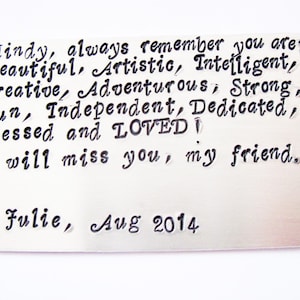 Mindy, always remember you are
Beautiful, Artistic, Intelligent,
Creative, Adventurous, Strong,
Fun, Independent, Dedicated,
Blessed and LOVED!
I will miss you, my friend.
Julie, Aug 2014